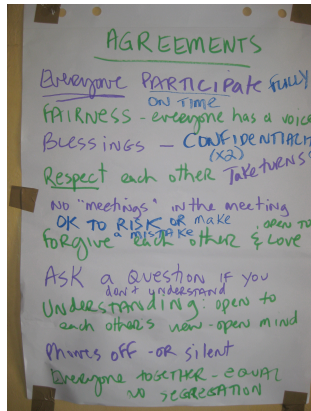 AGREEMENTS
Everyone PARTICIPATE FULLY
ON TIME
FAIRNESS - everyone has a voice
Blessings - CONFIDENTIALI
(X2)
Respect each other Take turns
NO "meetings" in the meeting
OK TO RISK OR make
a mistake
forgive each other & love
open to
ASK a Question if you
don't understand
UNDERSTANDING: open to
each other's view - open mind
Phones off - OR silent
Everyone TOGETHER - EQUAL
NO SEGREGATION